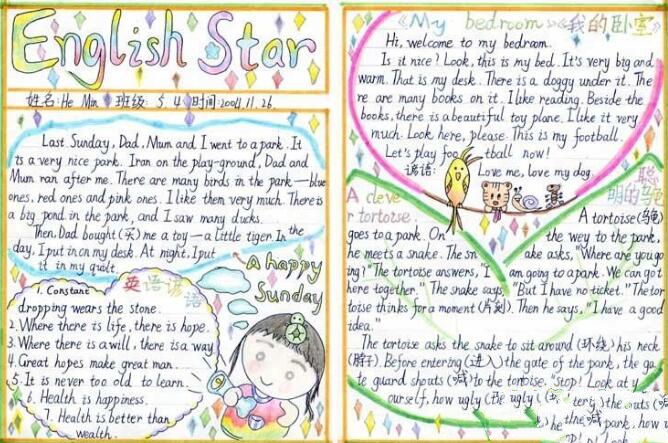 English Star
姓名:He Min 班级:5.4 时间:2004.11.26.
Last Sunday, Dad, Mum and I went to a park. It
is a very nice park. I ran on the play-ground, Dad and
Mum ran after me. There are many birds in the park—blue
ones, red ones and pink ones. I like them very much. There is
a big pond in the park, and I saw many ducks.
Then, Dad bought(买)me a toy—a little tiger In the
day, I put in on my desk. At night, I put
it in my quilt.
A happy
Sunday
英语谚语
1. Constant
dropping wears the stone.
2. Where there is life, there is hope.
3. Where there is a will, there is a way
4. Great hopes make great man.
5. It is never too old to learn.
6. Health is happiness.
7. Health is better than
wealth.
《My bedroom》《我的卧室》
Hi, welcome to my bedroom.
Is it nice? Look, this is my bed. It's very big and
warm. That is my desk. There is a doggy under it. The
re are many books on it. I like reading. Beside the
books, there is a beautiful toy plane. I like it very
much. Look here, please. This is my football.
Let's play football now!
谚语: Love me, love my dog.
A clever tortoise.
聪明的
A tortoise
goes to a park. On the wey to the park,
he meets a snake. The snake asks, "Where are you go
ing?" The tortoise answers, "I am going to a park. We can got
here together." The snake says, "But I have no ticket." The tor
toise thinks for a moment(片刻). Then he says, "I have a good
idea."
The tortoise asks the snake to sit around(环绕)his neck
(脖子). Before entering(进入)the gate of the park, the ga
te guard shouts(喊)to the tortoise. Stop! Look at y
ourself, how ugly
the park, how